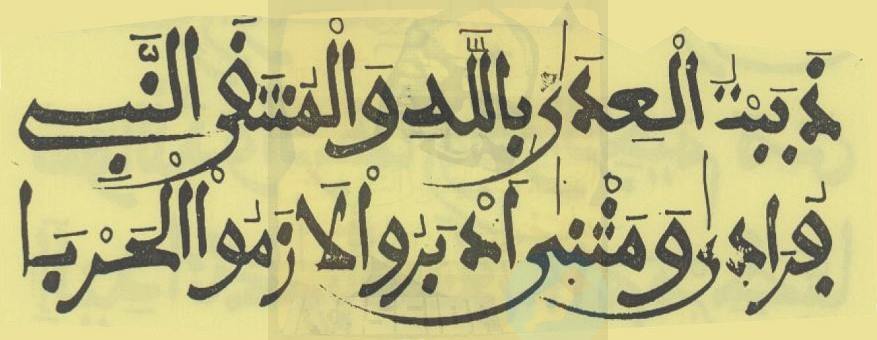 ذَبَبْتُ الْعِدَى بِاللَّهِ وَالْمُنتَقَى النَّبِي
فُرَادَى وَمَثْنَى اَدْبَرُواْ لَازَمُواْ الْحَرْبَا